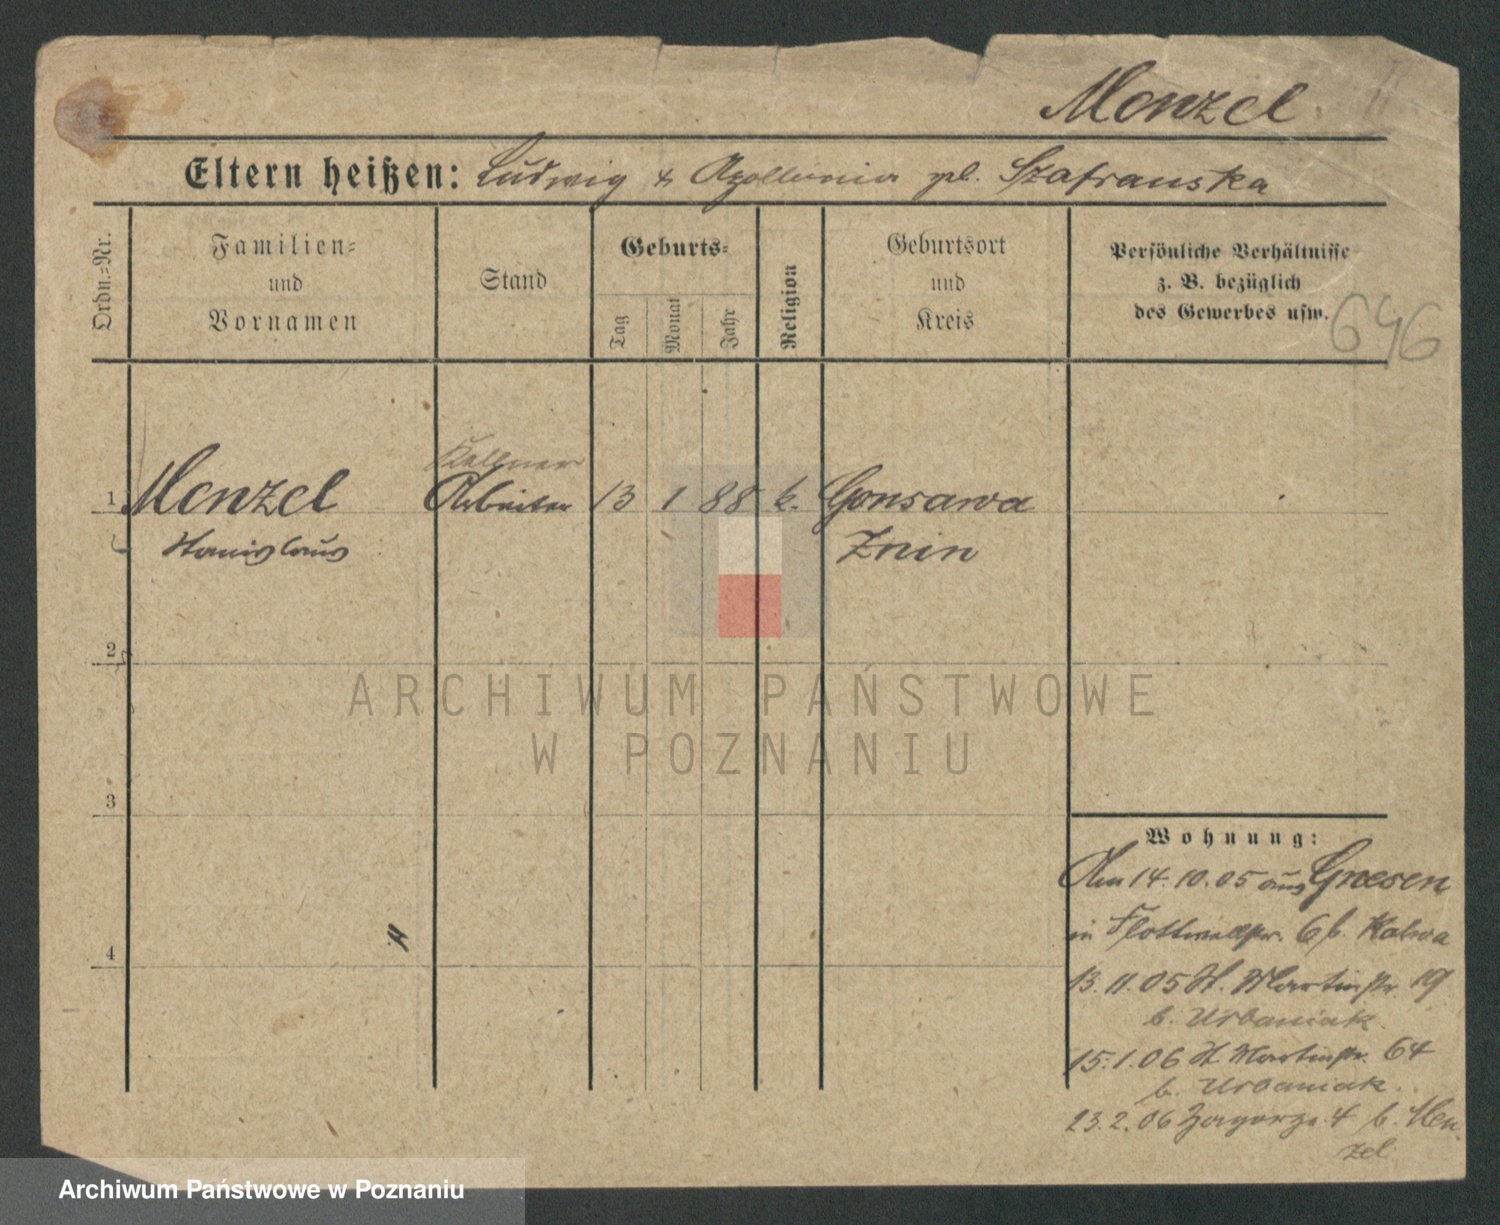 Menzel
Eltern heißen: Ludwig & Apollonia geb. Szafranska
Ordn.-Nr.
Familien-
und
Vornamen
Stand
Geburts-
Tag
Monat
Jahr
Religion
Geburtsort
und
Kreis
Persönliche Verhältnisse
z. B. bezüglich
des Gewerbes usw.
646
Kellner
1 Menzel Arbeiter 13 1 88 k. Gonsawa
Stanislaus Znin
2
3
4
Wohnung:
Am 14.10.05 aus Gnesen
in Flottwellstr. 6 b. Kalwa
13.11.05 St. Martinstr. 19
b. Urbaniak
15.1.06 St. Martinstr. 64
b. Urbaniak.
23.2.06 Zagorze 4 b. Men
zel
ARCHIWUM PAŃSTWOWE
W POZNANIU
Archiwum Państwowe w Poznaniu